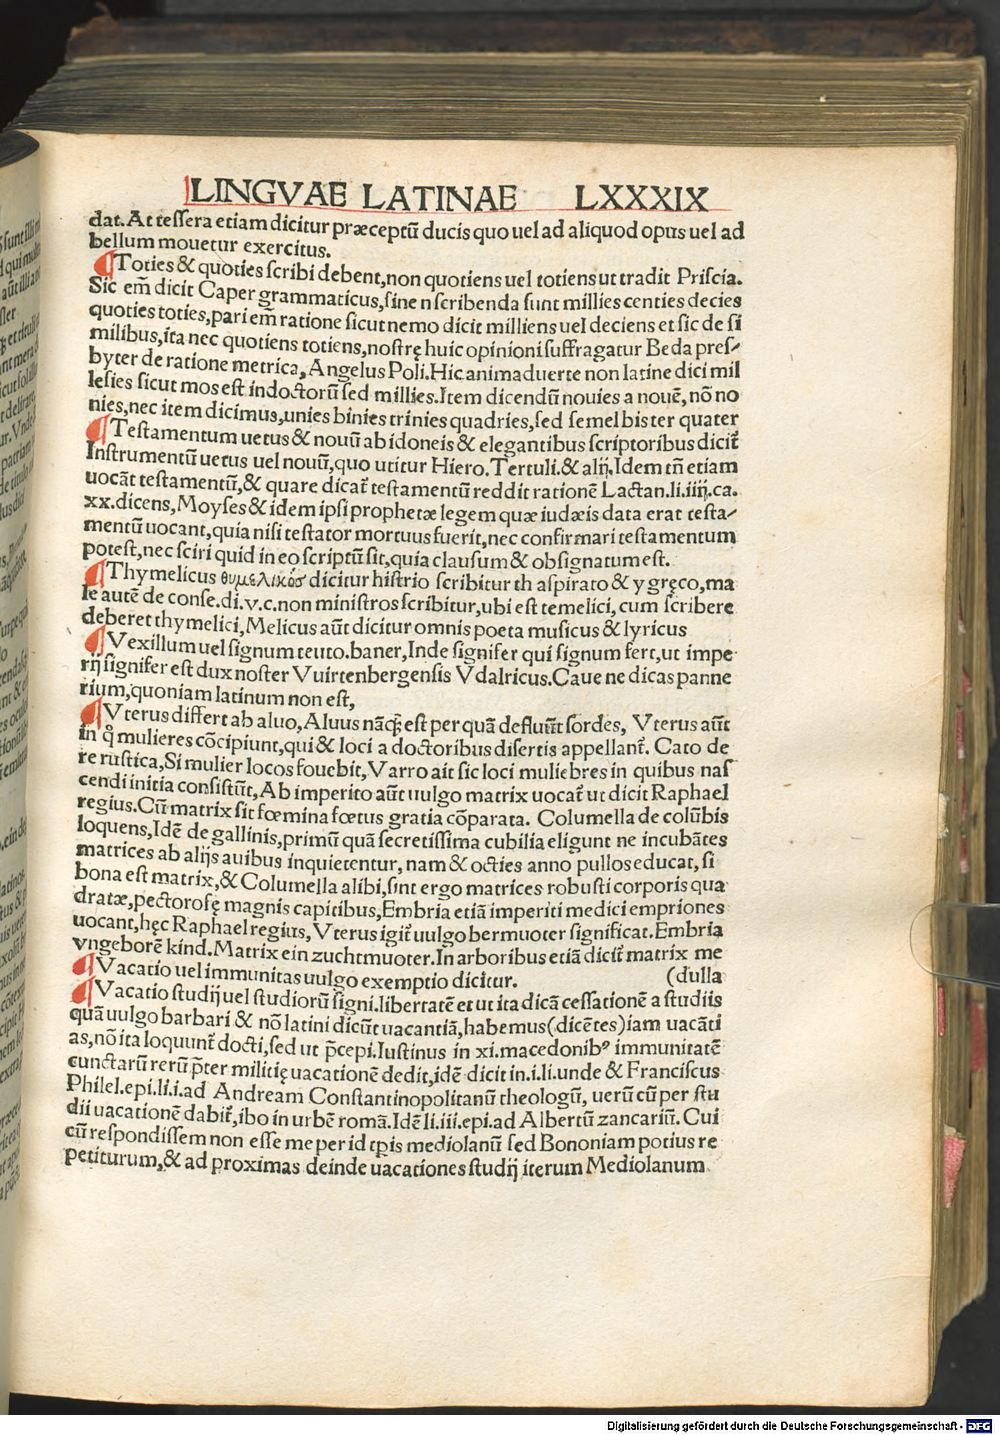 LINGVAE LATINAE LXXXIX
dat. At tessera etiam dicitur præceptū ducis quo uel ad aliquod opus uel ad
bellum mouetur exercitus.
¶Toties & quoties scribi debent,non quotiens uel totiens ut tradit Priscia.
Sic em̄ dicit Caper grammaticus,sine n scribenda sunt millies centies decies
quoties toties,pari em̄ ratione sicut nemo dicit milliens uel deciens et sic de si
milibus,ita nec quotiens totiens,nostrę huic opinioni suffragatur Beda pres⸗
byter de ratione metrica, Angelus Poli. Hic animaduerte non latine dici mil
lesies sicut mos est indoctorū sed millies. Item dicendū nouies a nouē, nō no
nies,nec item dicimus,unies binies trinies quadries,sed semel bis ter quater
¶Testamentum uetus & nouū ab idoneis & elegantibus scriptoribus dicit̄
Instrumentū uetus uel nouū,quo utitur Hiero. Tertuli. & alij. Idem tn̄ etiam
uocāt testamentū,& quare dicat̄ testamentū reddit rationē Lactan.li.iiij.ca.
xx.dicens, Moyses & idem ipsi prophetæ legem quæ iudæis data erat testa⸗
mentū uocant,quia nisi testator mortuus fuerit,nec confirmari testamentum
potest,nec sciri quid in eo scriptū sit,quia clausum & obsignatum est.
¶Thymelicus θυμελικόσ dicitur histrio scribitur th aspirato & y gręco,ma
le autē de conse.di.v.c.non ministros scribitur,ubi est temelici, cum scribere
deberet thymelici, Melicus aūt dicitur omnis poeta musicus & lyricus
¶Vexillum uel signum teuto.baner,Inde signifer qui signum fert,ut impe
rij signifer est dux noster Vuirtenbergensis Vdalricus. Caue ne dicas panne
rium,quoniam latinum non est,
¶Vterus differt ab aluo, Aluus nāq; est per quā defluūt sordes, Vterus aūt
in q̊ mulieres cōcipiunt,qui & loci a doctoribus disertis appellant̄. Cato de
re rustica, Si mulier locos fouebit, Varro ait sic loci muliebres in quibus nas
cendi initia consistūt, Ab imperito aūt uulgo matrix uocat̄ ut dicit Raphael
regius. Cū matrix sit fœmina fœtus gratia cōparata. Columella de colūbis
loquens, Idē de gallinis,primū quā secretissima cubilia eligunt ne incubātes
matrices ab alijs auibus inquietentur, nam & octies anno pullos educat, si
bona est matrix,& Columella alibi,sint ergo matrices robusti corporis qua
dratæ,pectorosę magnis capitibus, Embria etiā imperiti medici empriones
uocant,hęc Raphael regius, Vterus igit̄ uulgo bermuoter significat. Embria
vngeborē kind. Matrix ein zuchtmuoter. In arboribus etiā dicit̄ matrix me
¶Vacatio uel immunitas uulgo exemptio dicitur. (dulla
¶Vacatio studij uel studiorū signi.libertatē et ut ita dicā cessationē a studiis
quā uulgo barbari & nō latini dicūt uacantiā,habemus(dicētes)iam uacāti
as,nō ita loquunt̄ docti,sed ut p̄cepi. Iustinus in xi.macedonibꝰ immunitatē
cunctarū rerū p̄ter militię uacationē dedit,idē dicit in.i.li.unde & Franciscus
Philel.epi.li.i.ad Andream Constantinopolitanū theologū, uerū cū per stu
dii uacationē dabit̄,ibo in urbē romā. Idē li.iii.epi.ad Albertū zancariū. Cui
cū respondissem non esse me per id tp̄is mediolanū sed Bononiam potius re
petiturum,& ad proximas deinde uacationes studij iterum Mediolanum
Digitalisierung gefördert durch die Deutsche Forschungsgemeinschaft - DFG